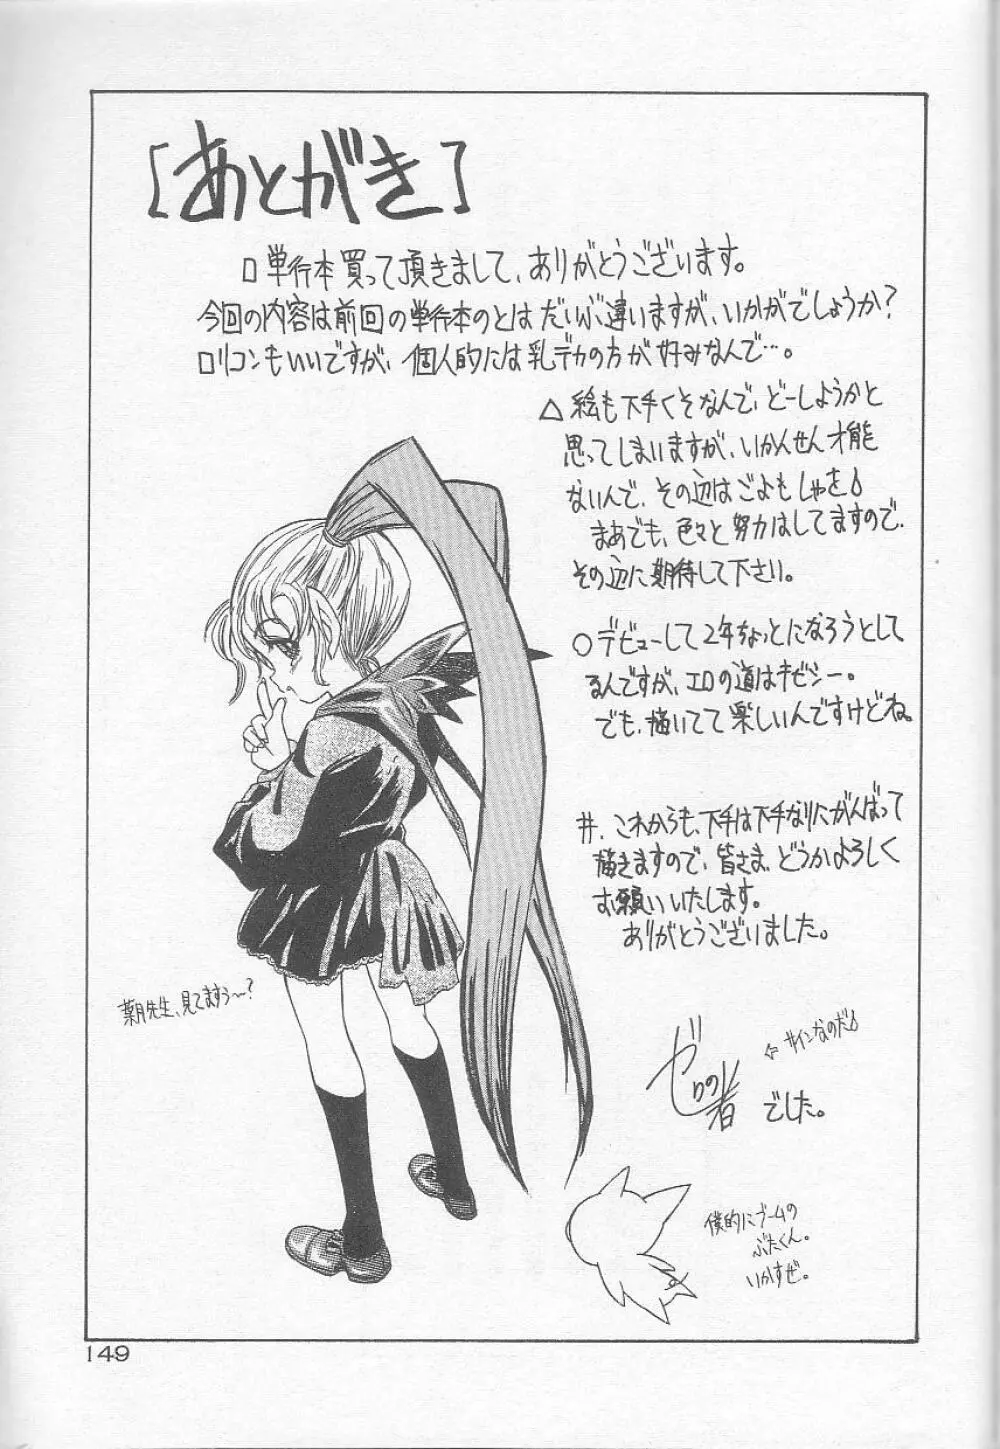 [あとがき]
□単行本買って頂きまして、ありがとうございます。
今回の内容は前回の単行本のとはだいぶ違いますが、いかがでしょうか?
ロリコンもいいですが、個人的には乳デカの方が好みなんで…。
△絵も下手くそなんで、どーしようかと
思ってしまいますが、いかんせん才能
ないんで、その辺はごよもしゃを♢
まあでも、色々と努力はしてますので、
その辺に期待して下さい。
○デビューして2年ちょっとになろうとして
るんですが、エロの道はキビシー。
でも、描いてて楽しいんですけどね。
#.これからも、下手は下手なりにがんばって
描きますので、皆さま、どうかよろしく
お願いいたします。
ありがとうございました。
葉月先生、見てますぅ〜?
⇦サインなのだ♢
ゼロの者
でした。
僕的にブームの
ぶたくん。
いかすぜ。
149